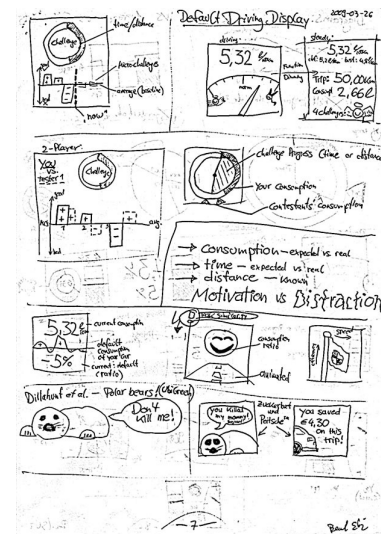 Default Driving Display
2009-03-26
time/distance
challenge
good
bad
micro challenges
average (baseline)
"now"
driving:
5,32
norm
steady:
5,32
Trip: 50,00km
Consumpt: 2,66 l
4 challenges!
2-Player
YOU
vs.
tester 1
challenge
good
bad
avg
1
2
3
challenge Progress (time or distance)
Your consumption
Contestants consumption
→ consumption – expected vs real
→ time – expected vs real
→ distance – known
Motivation vs Distraction
5,32
-5%
current consumption
default
consumption
of your car
current:default
(ratio)
consumption
ratio
animated
speed
Dillahunt et al. – Polar bears! (UbiGreen)
Don't
kill me!
You killed
my
Zuckerbrot
und
Peitsche
you saved
€4,30
on this
trip!
-7-